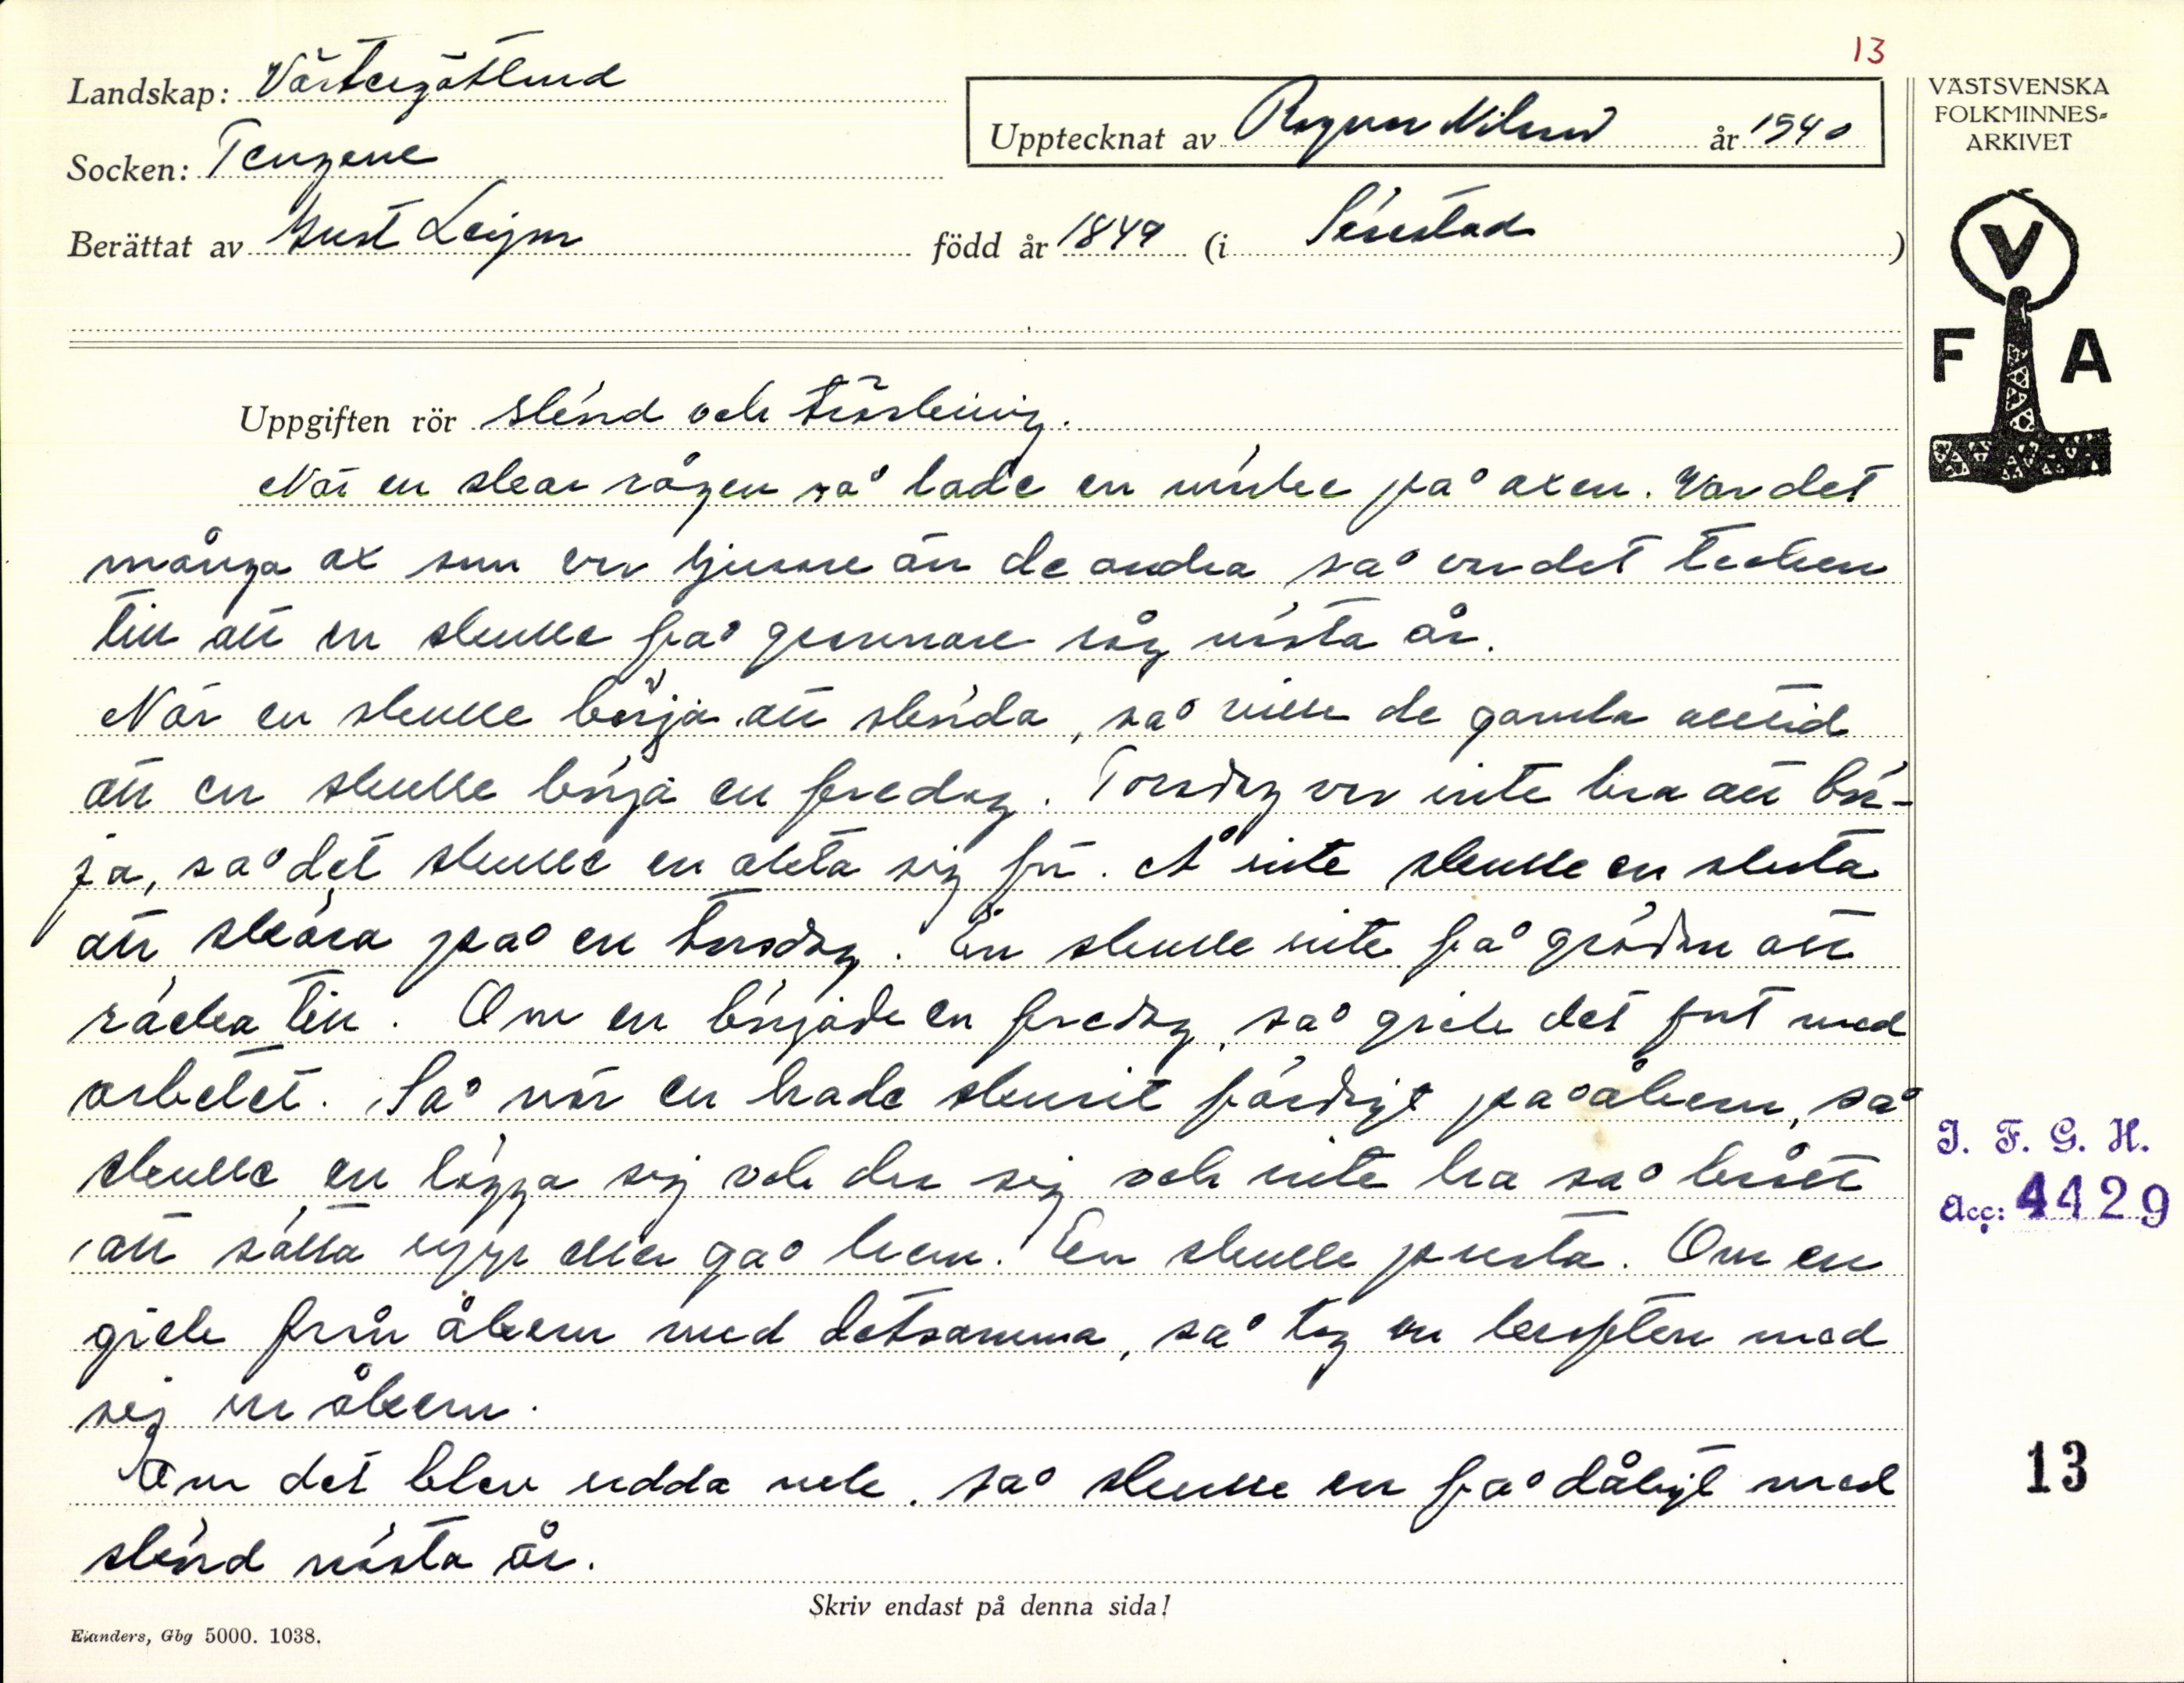 13
Landskap: Västergötland
Upptecknat av Ragnar Nilsson år 1940
VÄSTSVENSKA
FOLKMINNES-
ARKIVET
Socken: Tengene
Berättat av Gust Lejon född år 1849 (i Såtestad)
V
F A
Uppgiften rör skörd och tröskning.
När en skar rågen så lade en märke på axen. Var det
många ax som var ljusare än de andra så var det tecken
till att en skulle få grannare råg nästa år.
När en skulle börja att skörda, så ville de gamla alltid
att en skulle börja en fredag. Torsdag var inte bra att bör-
ja, så det skulle en akta sig för. Å inte skulle en sluta
att skära på en torsdag. En skulle inte få grödan att
räcka till. Om en började en fredag, så gick det fort med
arbetet. Så när en hade skurit färdigt på åkern, så
skulle en lägga sig och dra sig och inte ha så brått
att sätta upp eller gå hem. En skulle pusta. Om en
gick från åkern med detsamma, så tog en kraften med
sig ur åkern.
Om det blev udda nek, så skulle en få dåligt med
skörd nästa år.
I. F. G. H.
Acc: 4429
13
Skriv endast på denna sida!
Elanders, Gbg 5000. 1038.